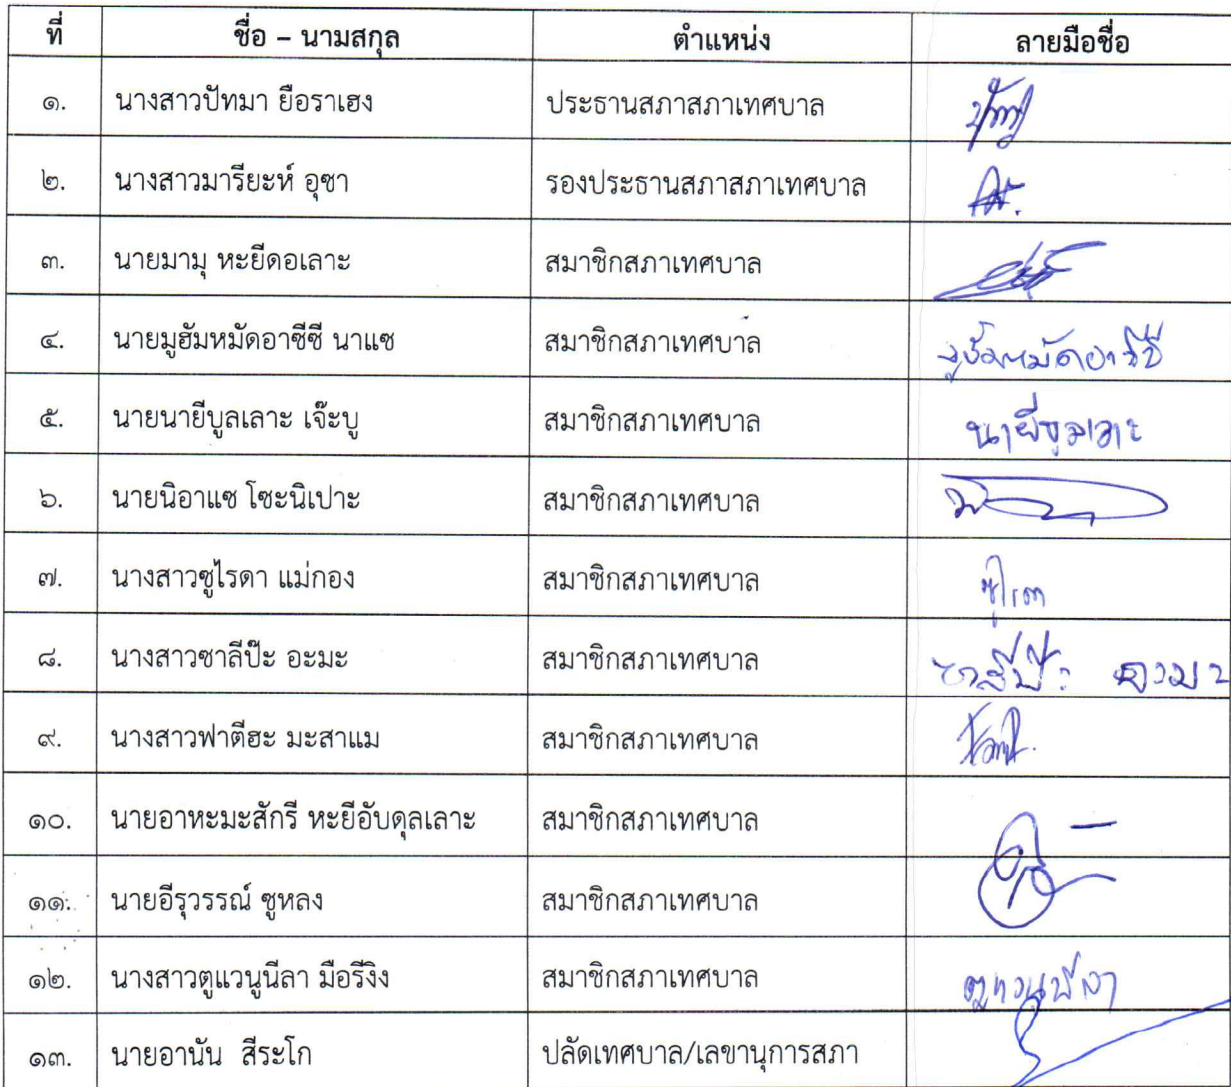 ที่ ชื่อ – นามสกุล ตำแหน่ง ลายมือชื่อ
๑. นางสาวปัทมา ยือราเฮง ประธานสภาสภาเทศบาล
๒. นางสาวมารียะห์ อุซา รองประธานสภาสภาเทศบาล
๓. นายมามุ หะยีดอเลาะ สมาชิกสภาเทศบาล
๔. นายมูฮัมหมัดอาซีซี นาแซ สมาชิกสภาเทศบาล มูฮัมหมัดอาซีซี
๕. นายนายีบูลเลาะ เจ๊ะบู สมาชิกสภาเทศบาล นายีบูลเลาะ
๖. นายนิอาแซ โซะนิเปาะ สมาชิกสภาเทศบาล
๗. นางสาวซูไรดา แม่กอง สมาชิกสภาเทศบาล
๘. นางสาวซาลีป๊ะ อะมะ สมาชิกสภาเทศบาล ซาลีป๊ะ อะมะ
๙. นางสาวฟาตีฮะ มะสาแม สมาชิกสภาเทศบาล
๑๐. นายอาหะมะสักรี หะยีอับดุลเลาะ สมาชิกสภาเทศบาล
๑๑. นายอีรุวรรณ์ ซูหลง สมาชิกสภาเทศบาล
๑๒. นางสาวตูแวนูนีลา มือรีงิง สมาชิกสภาเทศบาล
๑๓. นายอานัน สีระโก ปลัดเทศบาล/เลขานุการสภา